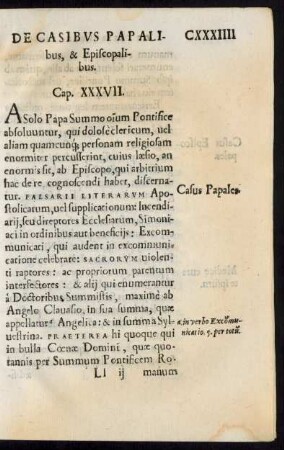 DE CASIBVS PAPALI- CXXXIIII
bus, & Episcopali-
bus.
Cap. XXXVII.
A Solo Papa Summo oīum Pontifice
absoluuntur, qui dolosè clericum, uel
aliam quamcunq; personam religiosam
enormiter percusserint, cuius læsio, an
enormis sit, ab Episcopo, qui arbitrium
hac de re cognoscendi habet, discerna-
tur. FALSARII LITERARVM Apo-
stolicatum, uel supplicationum: Incendi-
arij, seu direptores Ecclesarum, Simoni-
aci in ordinibus aut beneficijs: Excom-
municati, qui audent in excommuni-
catione celebrare: SACRORVM uiolen-
ti raptores: ac propriorum parentum
interfectores: & alij qui enumerantur
á Doctoribus, Summistis, maximè ab
Angelo Clauasio, in sua summa, quæ
appellatur Angelica: & in summa Syl-
uestrina. PRAETEREA hi quoque qui
in bulla Cœnæ Domini, quæ quo-
tannis per Summum Pontificem Ro-
Ll ij manum
Casus Papales.
a in verbo Excōmu-
nicatio. 5. per totū.